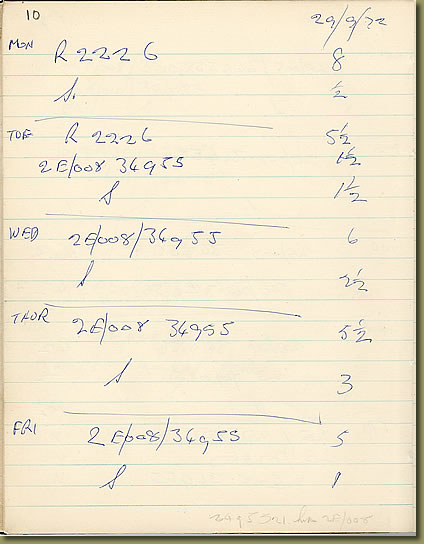 10
29/9/72
MON R 2226 8
S. ½
TUE R 2226 5½
2E/008 34955 1½
S 1½
WED 2E/008/34955 6
S 2½
THUR 2E/008 34955 5½
S 3
FRI 2E/008/34955 5
S 1
2E/008